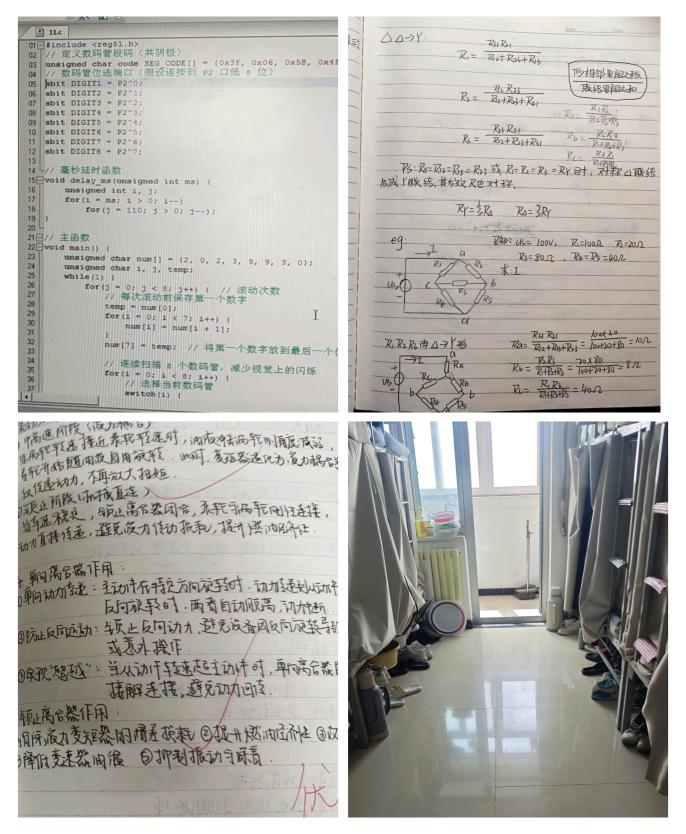 11.c
01 #include <reg51.h>
02 // 定义数码管段码 (共阴极)
03 unsigned char code SEG_CODE[] = {0x3F, 0x06, 0x5B, 0x4F
04 // 数码管位选端口 (假设连接到 P2 口低 8 位)
05 sbit DIGIT1 = P2^0;
06 sbit DIGIT2 = P2^1;
07 sbit DIGIT3 = P2^2;
08 sbit DIGIT4 = P2^3;
09 sbit DIGIT5 = P2^4;
10 sbit DIGIT6 = P2^5;
11 sbit DIGIT7 = P2^6;
12 sbit DIGIT8 = P2^7;
13
14 // 毫秒延时函数
15 void delay_ms(unsigned int ms) {
16 unsigned int i, j;
17 for(i = ms; i > 0; i--)
18 for(j = 110; j > 0; j--);
19 }
20
21 // 主函数
22 void main() {
23 unsigned char num[] = {2, 0, 2, 3, 9, 9, 3, 0};
24 unsigned char i, j, temp;
25 while(1) {
26 for(j = 0; j < 8; j++) { // 滚动次数
27 // 每次滚动前保存第一个数字
28 temp = num[0];
29 for(i = 0; i < 7; i++) {
30 num[i] = num[i + 1];
31 }
32 num[7] = temp; // 将第一个数字放到最后一个
33
34 // 连续扫描 8 个数码管，减少视觉上的闪烁
35 for(i = 0; i < 8; i++) {
36 // 选择当前数码管
37 switch(i) {
△ △→Y:
R₁ = R₁₂R₃₁ / R₁₂+R₂₃+R₃₁
R₂ = R₁₂R₂₃ / R₁₂+R₂₃+R₃₁
R₃ = R₂₃R₃₁ / R₁₂+R₂₃+R₃₁
PS: 或 R₁=R₂=R₃=RY时, 对称△联结
RY = 1/3 R△ R△ = 3RY
eg.
已知: Us=100V, R₁=100Ω R₂=20Ω
R₃=80Ω, R₄=R₅=40Ω
求: I
I
a
R₁
R₂
Us
c
R₃
b
R₄
R₅
d
R₁R₂R₃由△→Y形
= 100×20 / 100+20+80 = 10Ω
= 20×80 / 100+20+80 = 8Ω
= 40Ω
I
a
Ra
Us
Rb
b
R₄
R₅
仅传递动力，不再放大扭矩
锁止阶段(机械直连)
当车速稳定，锁止离合器闭合，泵轮与涡轮刚性连接，
动力直接传递，避免液力传动损耗，提升燃油经济性.
单向离合器作用:
①单向动力传递: 主动件在特定方向旋转时，动力传递到从动件
反向旋转时，两者自动脱离，动力中断
②防止反向运动: 锁止反向动力，避免设备因反向旋转导致
或意外操作
③实现"超越": 当从动件转速超主动件时，单向离合器自
接解连接，避免动力回流
锁止离合器作用:
液力变矩器的滑差损耗 ②提升燃油经济性 ③
降低变速器油温 ⑤抑制振动与噪音
优